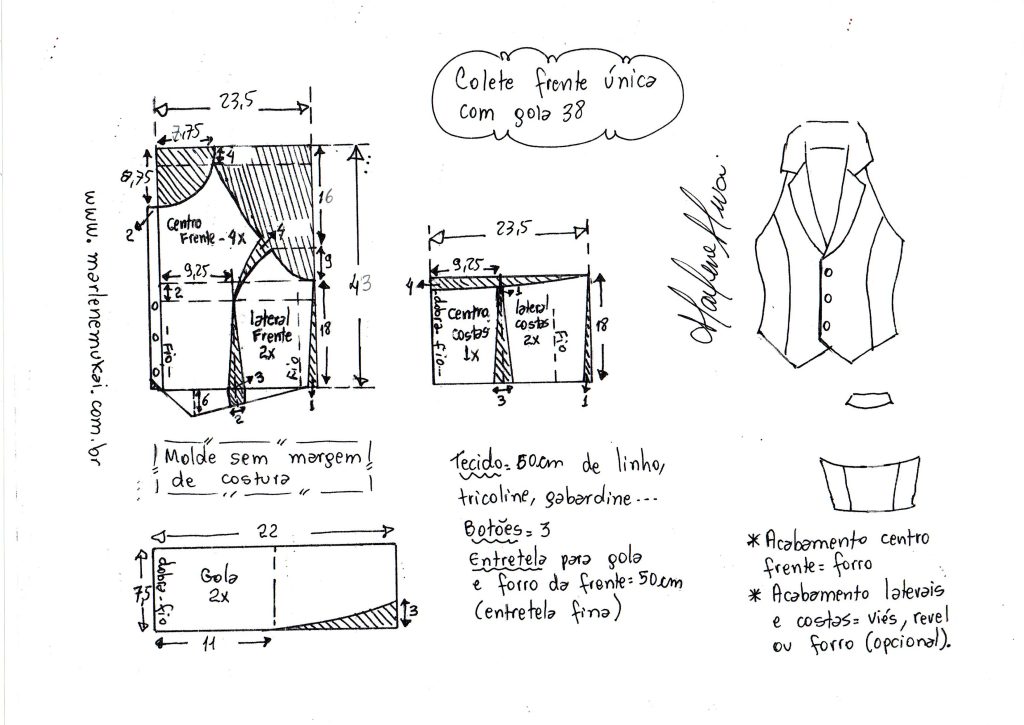 Colete frente única
com gola 38
23,5
7,75
4
8,75
2
Centro
Frente - 4x
4
16
9
43
9,25
2
18
lateral
Frente
2x
Fio
Fio
3
6
2
1
www.marlenemukai.com.br
Marlene Mukai
23,5
9,25
4
1
dobra-fio
Centro
costas
1x
lateral
costas
2x
Fio
18
3
1
Molde sem margem
de costura
22
7,5
dobra-fio
Gola
2x
3
11
Tecido = 50cm de linho,
tricoline, gabardine...
Botões = 3
Entretela para gola
e forro da frente = 50cm
(entretela fina)
* Acabamento centro
frente = forro
* Acabamento laterais
e costas = viés, revel
ou forro (opcional).